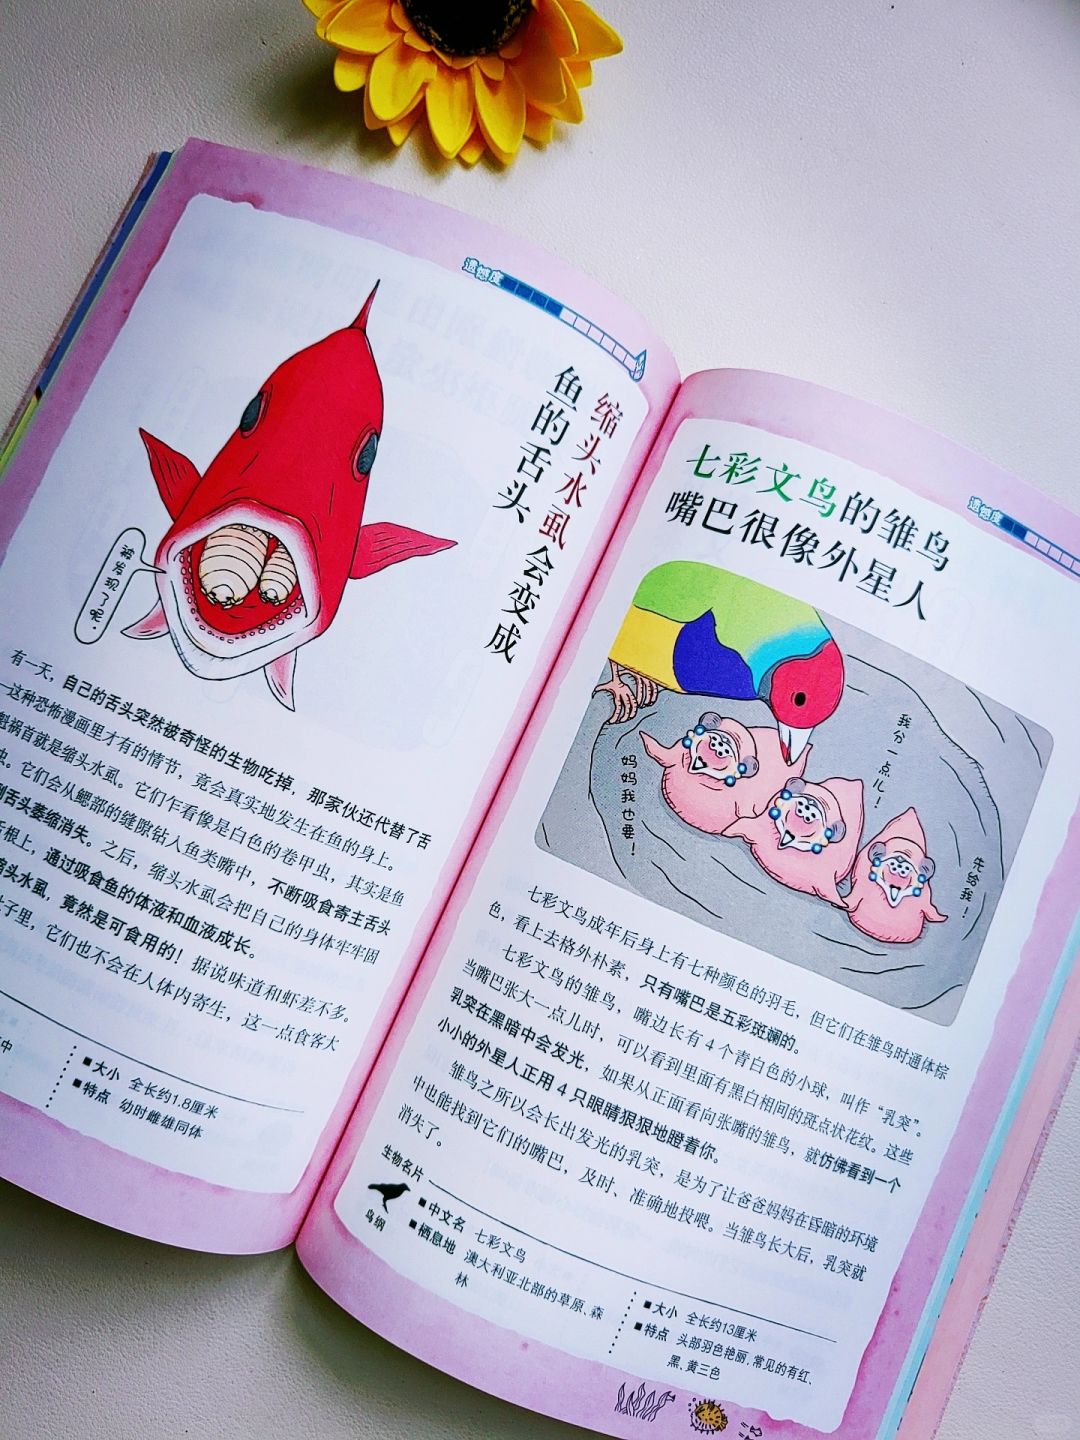 遗憾度
缩头水虱会变成
鱼的舌头
被发现了呢。
有一天，自己的舌头突然被奇怪的生物吃掉，那家伙还代替了舌
这种恐怖漫画里才有的情节，竟会真实地发生在鱼的身上。
魁祸首就是缩头水虱。它们乍看像是白色的卷甲虫，其实是鱼
虫。它们会从鳃部的缝隙钻入鱼类嘴中，不断吸食寄主舌头
到舌头萎缩消失。之后，缩头水虱会把自己的身体牢牢固
舌根上，通过吸食鱼的体液和血液成长。
缩头水虱，竟然是可食用的！据说味道和虾差不多。
肚子里，它们也不会在人体内寄生，这一点食客大
中
■大小 全长约1.8厘米
■特点 幼时雌雄同体
遗憾度
七彩文鸟的雏鸟
嘴巴很像外星人
我分一点儿！
妈妈我也要！
先给我！
七彩文鸟成年后身上有七种颜色的羽毛，但它们在雏鸟时通体棕
色，看上去格外朴素，只有嘴巴是五彩斑斓的。
七彩文鸟的雏鸟，嘴边长有4个青白色的小球，叫作“乳突”。
当嘴巴张大一点儿时，可以看到里面有黑白相间的斑点状花纹。这些
乳突在黑暗中会发光，如果从正面看向张嘴的雏鸟，就仿佛看到一个
小小的外星人正用4只眼睛狠狠地瞪着你。
雏鸟之所以会长出发光的乳突，是为了让爸爸妈妈在昏暗的环境
中也能找到它们的嘴巴，及时、准确地投喂。当雏鸟长大后，乳突就
消失了。
生物名片
鸟纲
■中文名 七彩文鸟
■栖息地 澳大利亚北部的草原、森
林
■大小 全长约13厘米
■特点 头部羽色艳丽，常见的有红、
黑、黄三色